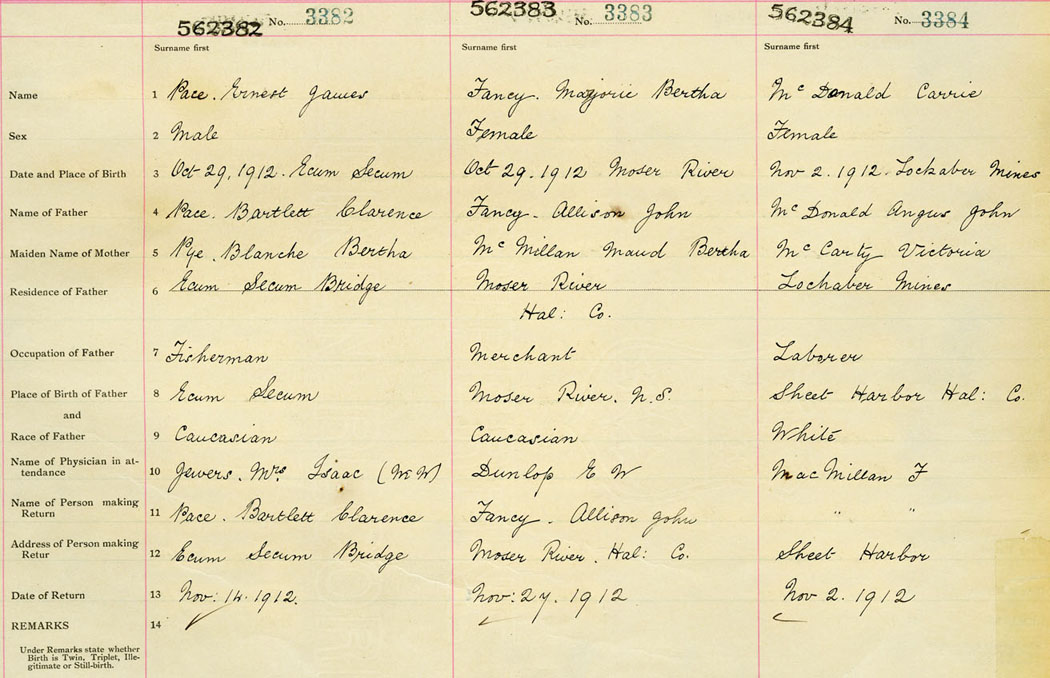 562382 No. 3382 562383 No. 3383 562384 No. 3384
Surname first Surname first Surname first
Name 1 Pace. Ernest James Fancy. Marjorie Bertha Mc Donald Carrie
Sex 2 Male Female Female
Date and Place of Birth 3 Oct 29, 1912. Ecum Secum Oct 29. 1912 Moser River Nov 2. 1912. Lochaber Mines
Name of Father 4 Pace. Bartlett Clarence Fancy. Allison John Mc Donald Angus John
Maiden Name of Mother 5 Pye. Blanche Bertha Mc Millan Maud Bertha Mc Carty Victoria
Residence of Father 6 Ecum Secum Bridge Moser River Lochaber Mines
Hal: Co.
Occupation of Father 7 Fisherman Merchant Laborer
Place of Birth of Father 8 Ecum Secum Moser River. N.S. Sheet Harbor Hal: Co.
and
Race of Father 9 Caucasian Caucasian White
Name of Physician in at-
tendance 10 Jewers. Mrs. Isaac (M.W) Dunlop E W MacMillan F
Name of Person making
Return 11 Pace. Bartlett Clarence Fancy. Allison John " "
Address of Person making
Retur 12 Ecum Secum Bridge Moser River. Hal: Co. Sheet Harbor
Date of Return 13 Nov: 14. 1912. Nov: 27. 1912 Nov 2. 1912
REMARKS 14
Under Remarks state whether
Birth is Twin, Triplet, Ille-
gitimate or Still-birth.